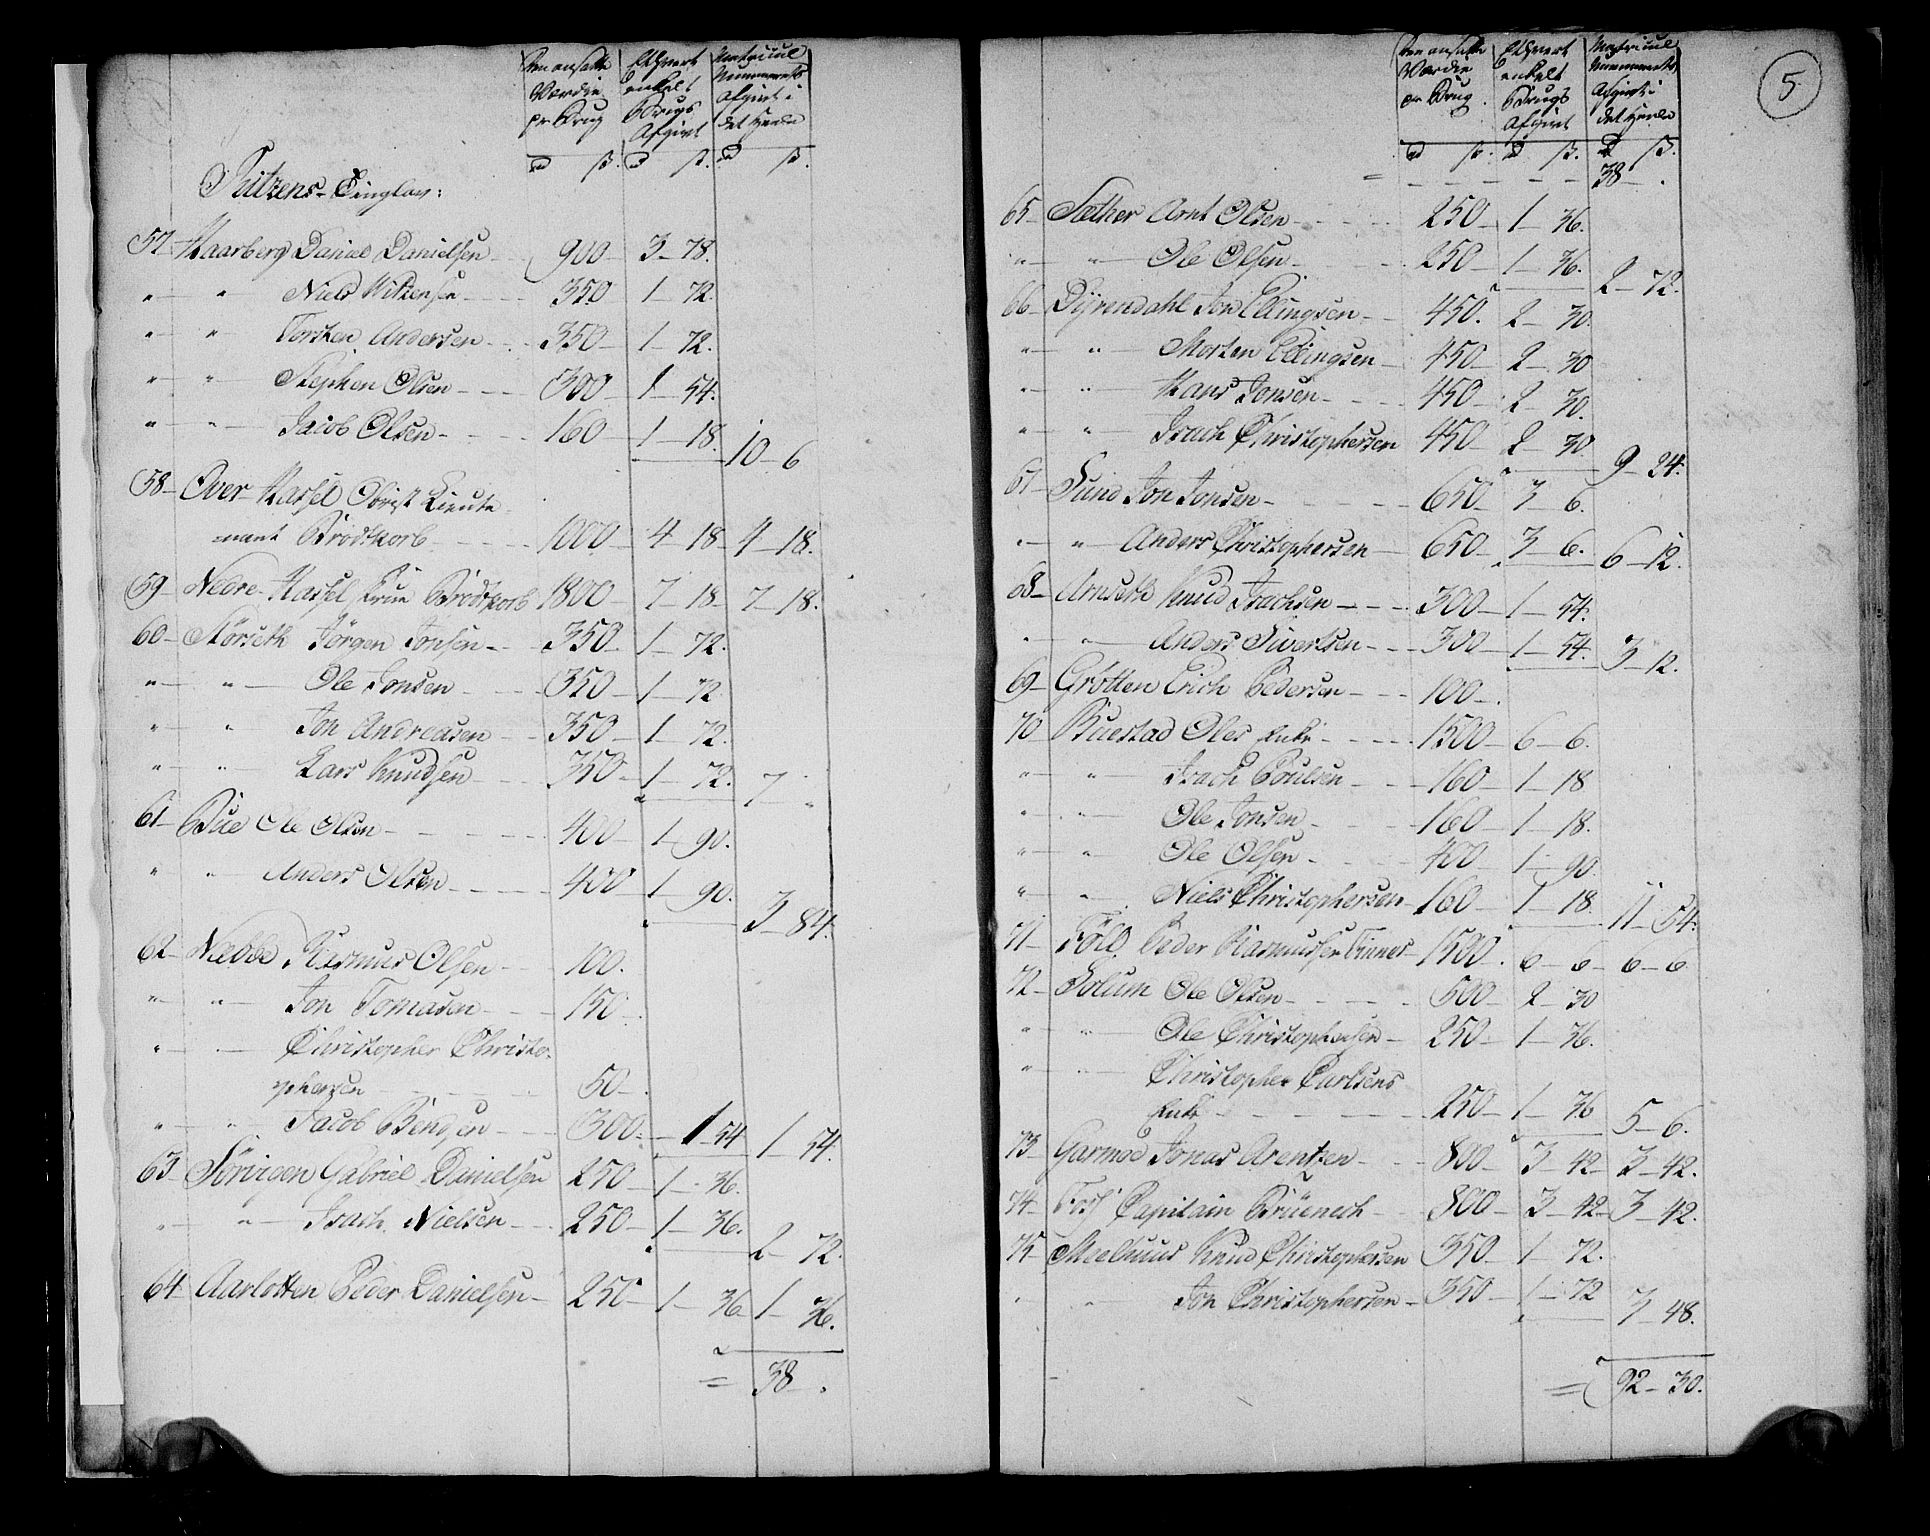 Den ansatte
Værdie
pr Brug
Ethvert
enkelt
Brugs
Afgivt
Matricul
Nummerets
Afgivt i
det heele
Ritzens Tinglav:
57 Haarberg Daniel Danielsen 900 3 78.
" " Niels Witzensen 350 1 72.
" " Torsten Andersen 350 1 72.
" " Stephen Olsen 300 1 54.
" " Jacob Olsen 160 1 18. 10 6
58 Over Hassel Obrist Lieute
nant Brodtkorb 1000 4 18 4 18.
59 Nedre Hassel Frue Brodtkorb 1800 7 18 7 18.
60 Mörseth Jörgen Jonsen 350 1 72.
" " Ole Jonsen 350 1 72
" " Jon Andreasen 350 1 72.
" " Lars Knudsen 350 1 72. 7 "
61 Bue Ole Olsen 400 1 90.
" " Anders Olsen 400 1 90. 3 84.
62 Nebbe Rasmus Olsen 100.
" " Jon Tomasen 150.
" " Christopher Christo-
phersen 50
" " Jacob Bendsen 300 1 54 1 54.
63 Sörvigen Gabriel Danielsen 250 1 36.
" " Isach Nielsen 250 1 36. 2 72.
64 Aarlotten Peder Danielsen 250 1 36 1 36.
= 38 .
5
Den ansatte
Værdie
pr Brug
Ethvert
enkelt
Brugs
Afgivt
Matricul
Nummerets
Afgivt i
det heele
= 38 .
65 Sæther Arnt Olsen 250 1 36.
" " Ole Olsen 250 1 36. 2 72.
66 Dyrendahl Jon Ellingsen 450. 2 30.
" " Morten Ellingsen 450 2 30
" " Hans Jonsen 450 2 30.
" " Isach Christophersen 450 2 30 9 24.
67 Sund Jon Jonsen 650 3 6.
" " Anders Christophersen 650 3 6. 6 12.
68 Arnseth Knud Isachsen 300 1 54.
" " Anders Sivertsen 300 1 54. 3 12.
69 Grötten Erich Pedersen 100
70 Buestad Oles Enke 1500 6 6.
" " Isach Poulsen 160 1 18
" " Ole Jonsen 160 1 18.
" " Ole Olsen 400 1 90.
" " Niels Christophersen 160 1 18. 11 54.
71 Föll Peder Rasmussen Finnes 1500. 6 6 6 6
72 Solum Ole Olsen 500 2 30
" " Ole Christophersen 250 1 36.
" " Christopher Carlsens
Enke 250 1 36 5 6.
73 Garmoe Jonas Arentzen 800 3 42 3 42.
74 Foss Capitain Brüenech 800 3 42 3 42.
75 Meelhuus Knud Christophersen 350 1 72.
" " Jon Christophersen 350 1 72 3 48.
= 92 30.